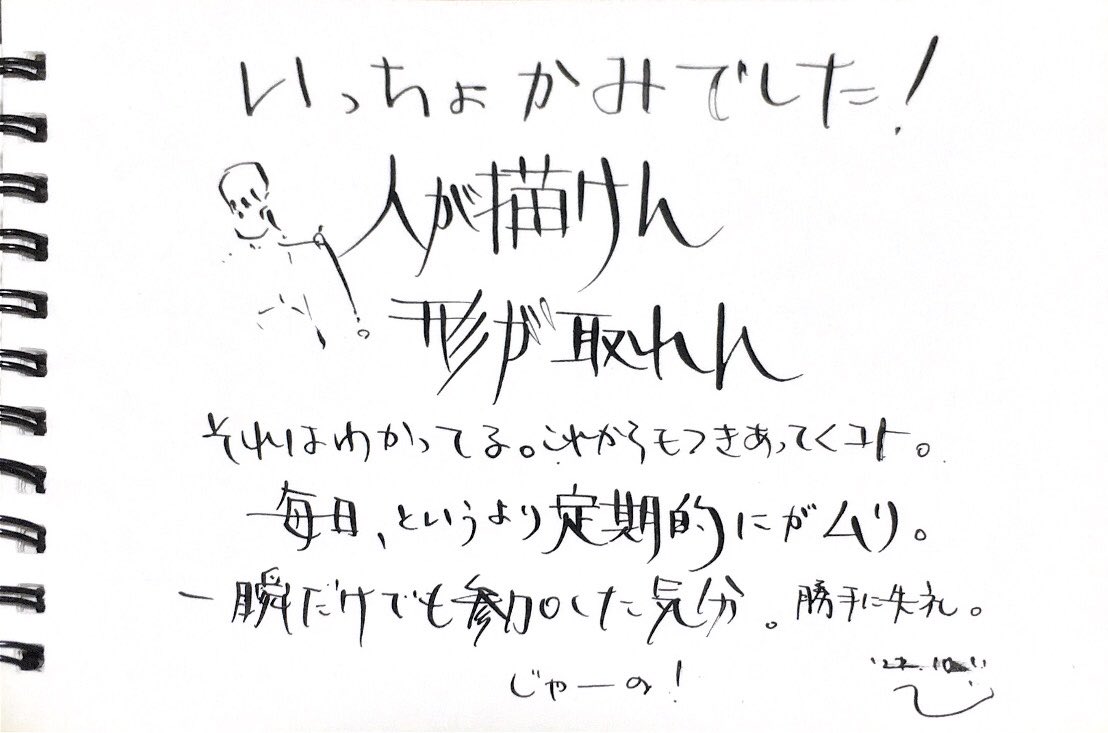 いっちょかみでした!
人が描けん
形が取れん
それはわかってる。これからもつきあってくコト。
毎日、というより定期的にがムリ。
一瞬だけでも参加した気分。勝手に失礼。
じゃーの!